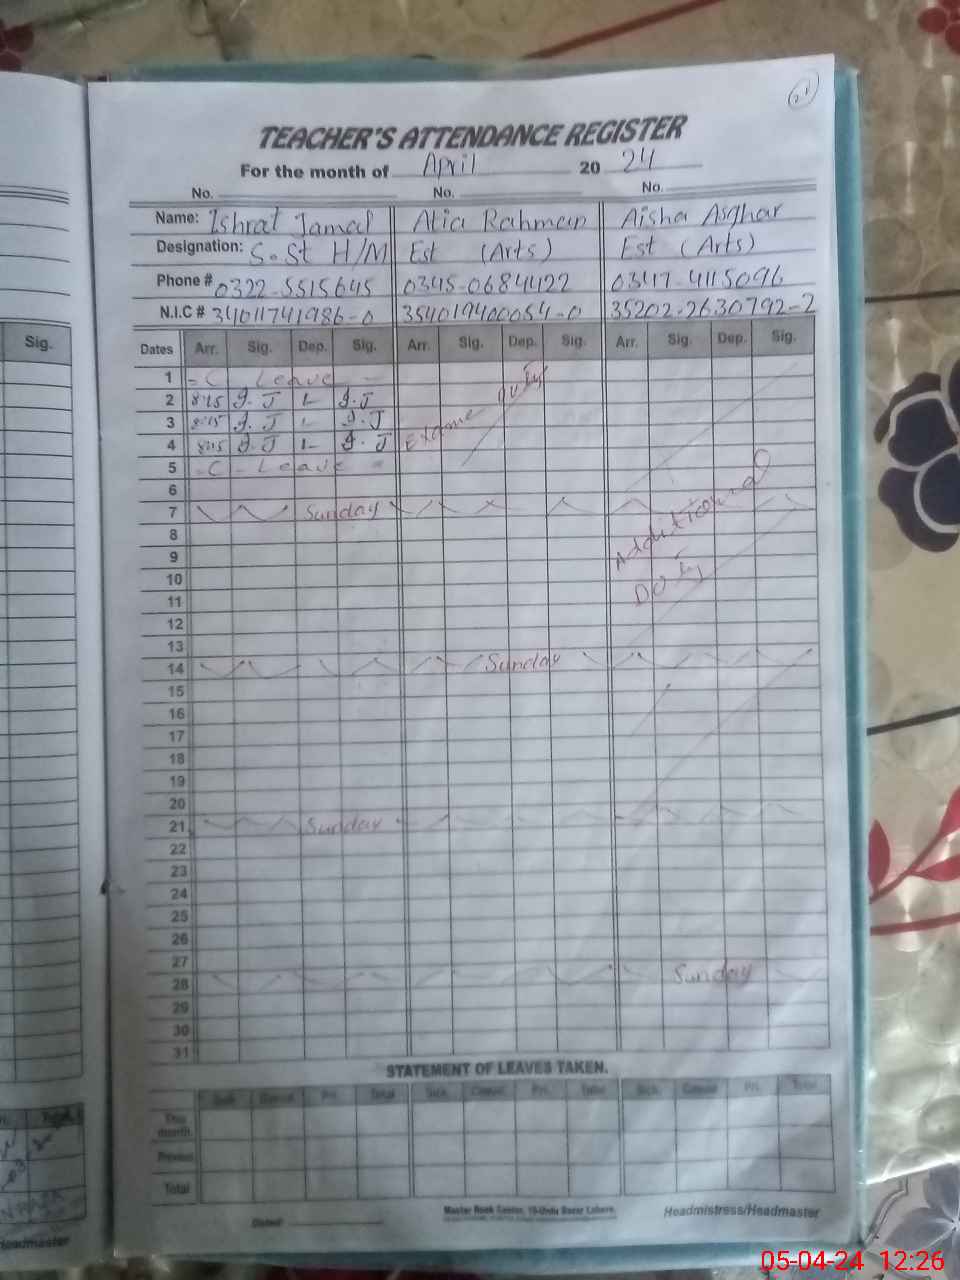 21
TEACHER'S ATTENDANCE REGISTER
For the month of April 2024
No. No. No.
Name: Ishrat Jamal Atia Rahman Aisha Asghar
Designation: S.St H/M Est (Arts) Est (Arts)
Phone # 0322-5515645 0345-0684122 0347-4115096
N.I.C # 34011741986-0 354019400054-0 35202-2630792-2
Sig.
Dates Arr. Sig. Dep. Sig. Arr. Sig. Dep. Sig. Arr. Sig. Dep. Sig.
1 - C Leave -
2 8:15 I.J 1- I.J
3 8:15 I.J 1- I.J
4 8:15 I.J 1- I.J
Exame duty
5 - C - Leave -
6
7 Sunday
8
9
Additional
10
Duty
11
12
13
14 Sunday
15
16
17
18
19
20
21 Sunday
22
23
24
25
26
27
28 Sunday
29
30
31
STATEMENT OF LEAVES TAKEN.
Sick. Casual Pri. Total Sick. Casual Pri. Total Sick. Casual Pri. Total
This month.
Previous
Total
Dated
Master Book Center, 10-Urdu Bazar Lahore.
Headmistress/Headmaster
Headmaster
05-04-24 12:26